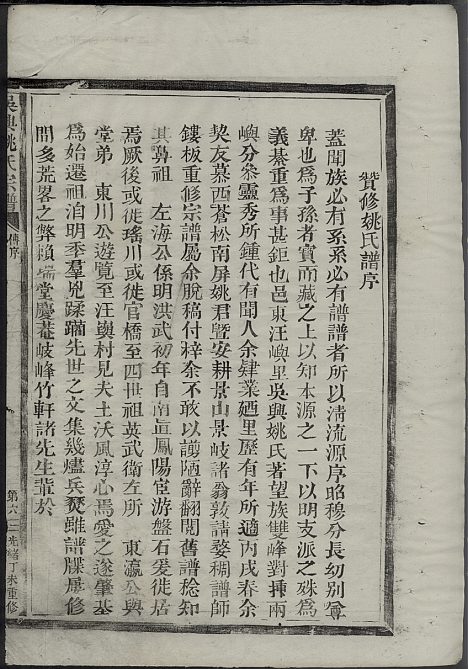 贊修姚氏譜序
蓋聞族必有系系必有譜譜者所以清流源序昭穆分長幼別尊
卑也為子孫者寶而藏之上以知本源之一下以明支派之殊為
義綦重為事甚鉅也邑東汪嶼里吳興姚氏著望族雙峰對揷兩
嶼分叅靈秀所鍾代有聞人余肄業廼里歷有年所適丙戌春余
契友慕西蒼松南屏姚君暨安耕景山景岐諸翁敦請婺稠譜師
鏤板重修宗譜屬余脫稿付梓余不敢以謭陋辭翻閱舊譜稔知
其鼻祖　左海公係明洪武初年自南直鳳陽宦游盤石爰徙居
焉厥後或徙瑤川或徙官橋至四世祖英武衛左所　東瀛公與
堂弟　東川公遊覽至汪嶼村見夫土沃風淳心焉愛之遂肇基
為始遷祖洎明季羣兇蹂躪先世之文集幾燼兵燹雖譜牒屢修
間多荒畧之弊賴端堂慶菴岐峰竹軒諸先生輩於
吳興姚氏宗譜
傳序
第六
光緒丁未重修